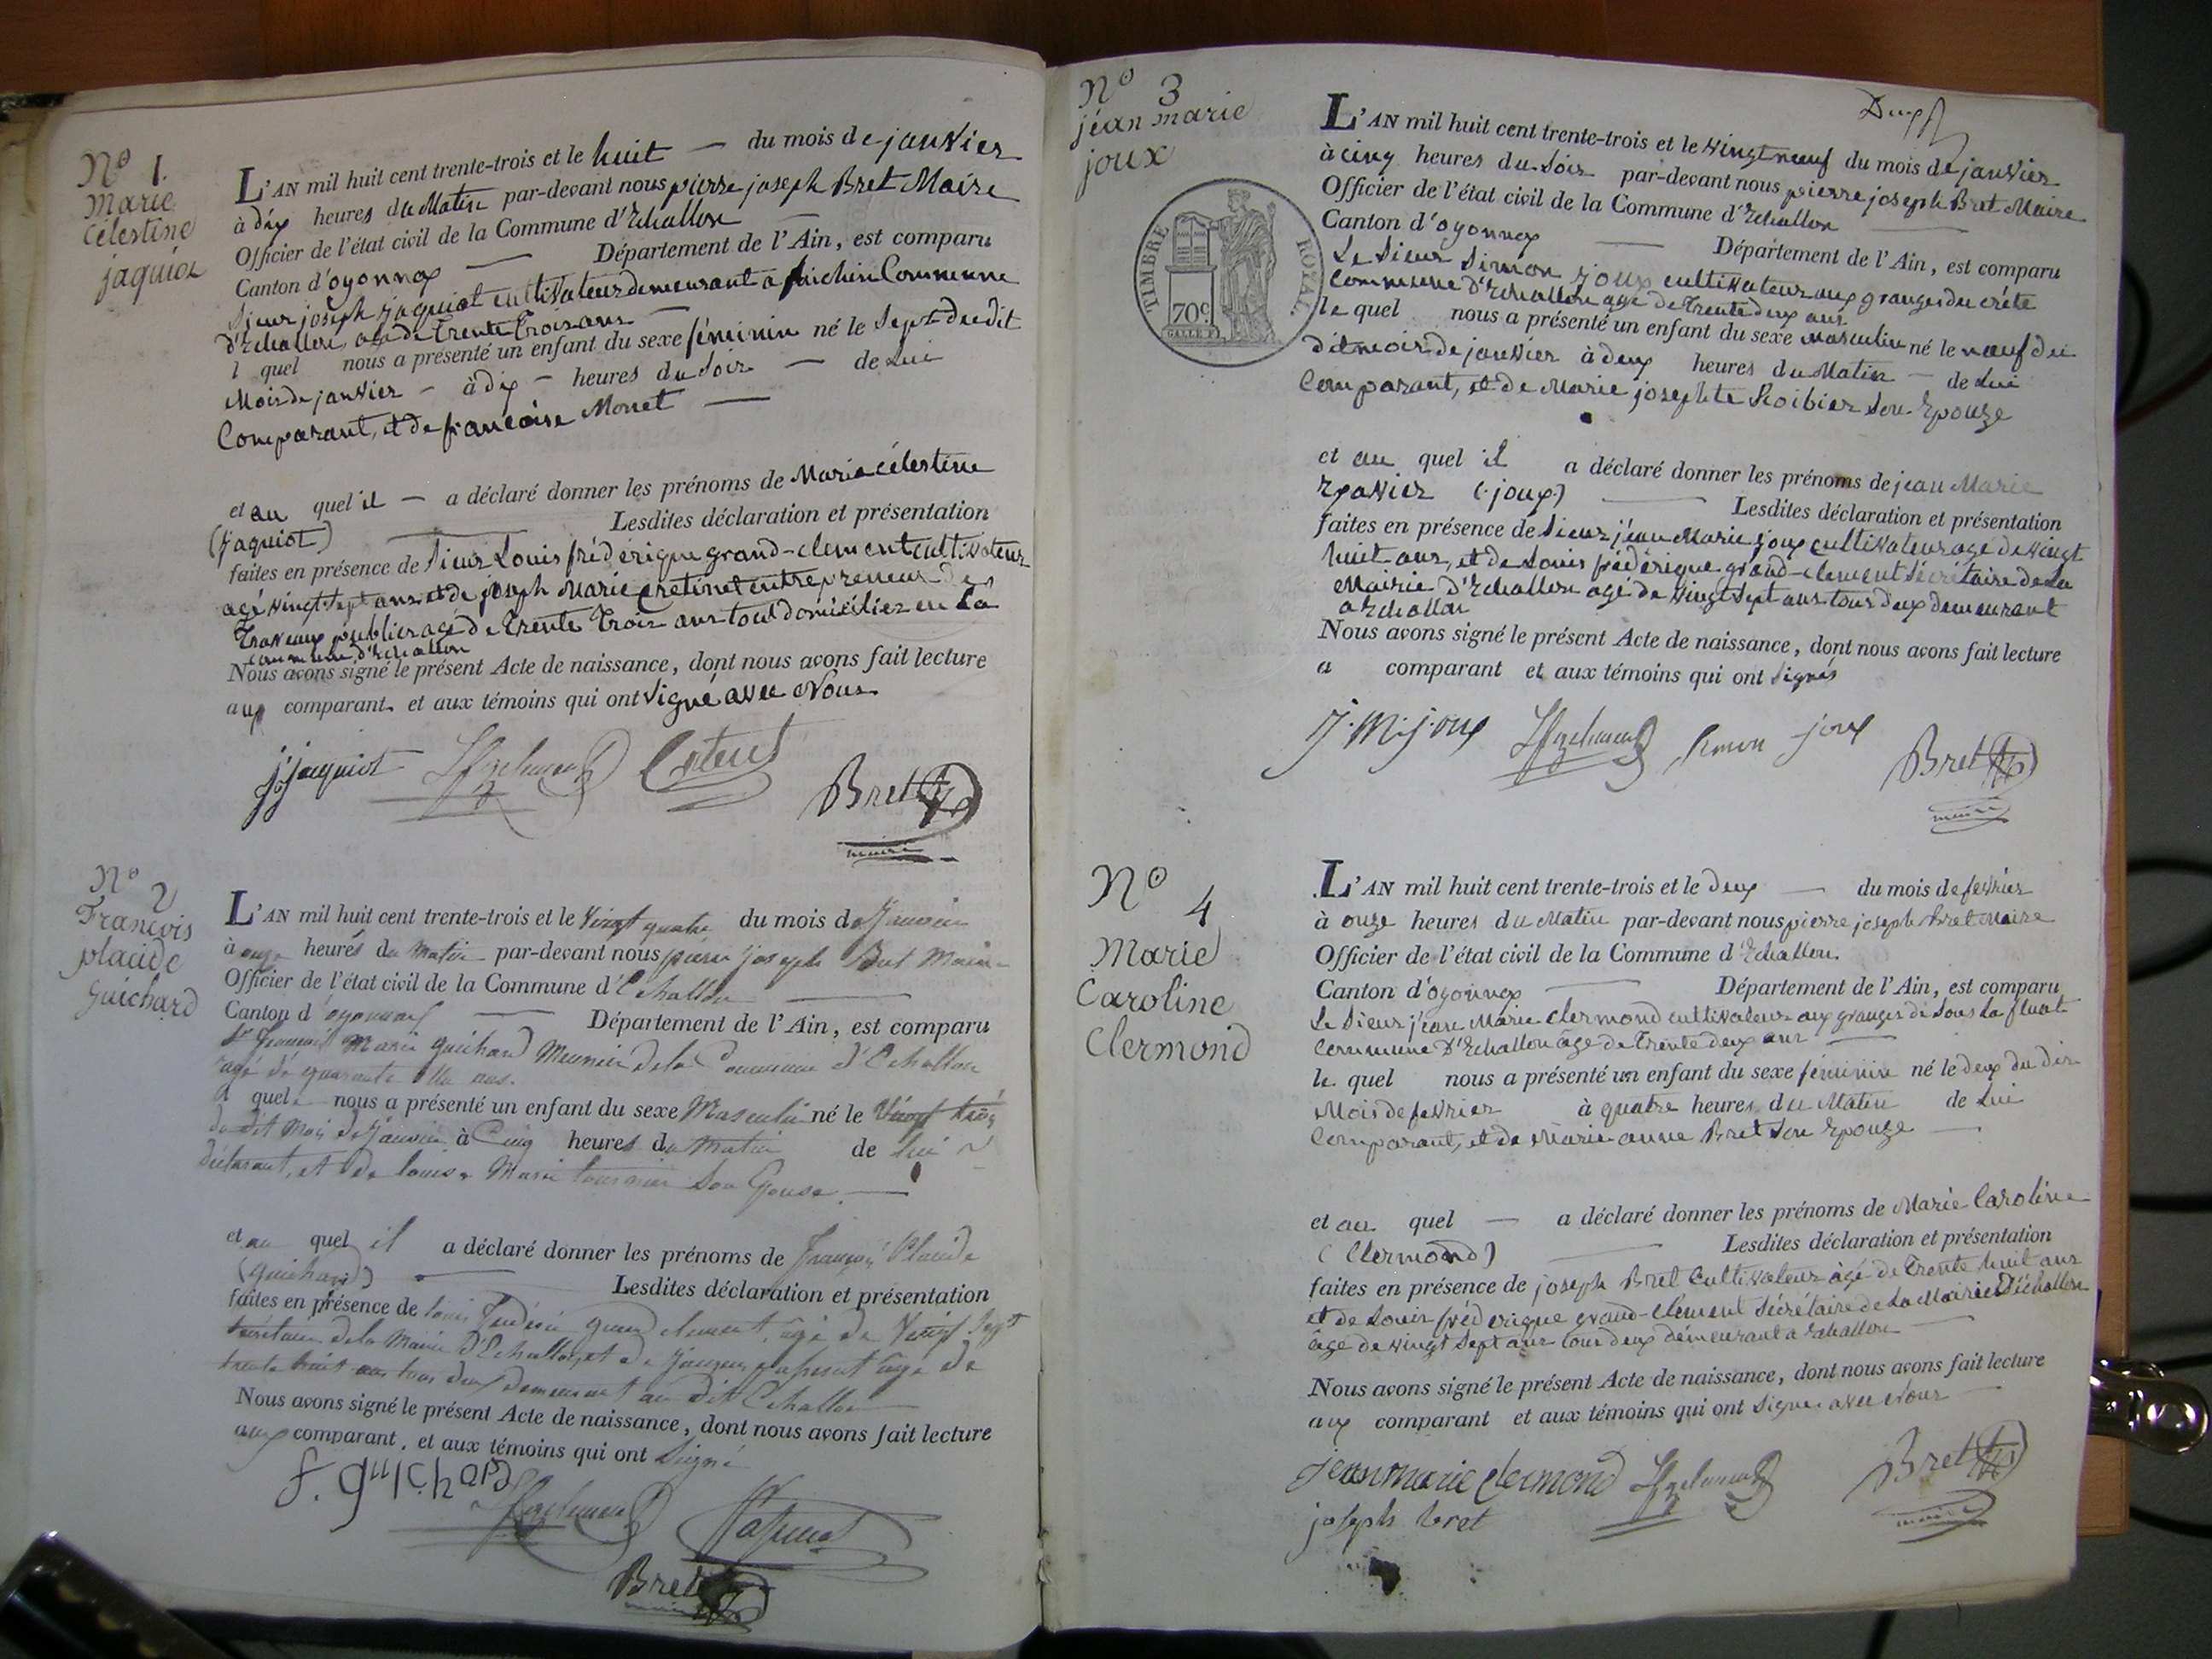 N° 1.
Marie
Célestine
jaquiot
L'AN mil huit cent trente-trois et le huit — du mois de janvier
à dix heures du Matin par-devant nous pierre joseph Bret Maire
Officier de l'état civil de la Commune d'Echallon
Canton d'oyonnax — Département de l'Ain, est comparu
Sieur joseph jaquiot cultivateur demeurant a Commune
d'Echallon, agé de trente trois ans —
l quel nous a présenté un enfant du sexe féminin né le sept du dit
Mois de janvier — à dix — heures du Soir — de Lui
Comparant, et de francoise Monet —
et au quel il — a déclaré donner les prénoms de Marie célestine
(jaquiot) — Lesdites déclaration et présentation
faites en présence de Sieur Louis frédérique grand-clement cultivateur
agé vingt-sept ans et de joseph Marie Cretinet entrepreneur des
Travaux publics agé de trente trois ans tout domiciliez en La
commune d'Echallon
Nous avons signé le présent Acte de naissance, dont nous avons fait lecture
aux comparant et aux témoins qui ont signé avec Nous
j jaquiot
Bret
maire
N° 2
François
placide
Guichard
L'AN mil huit cent trente-trois et le Vingt quatre du mois de Janvier
à onze heures du Matin par-devant nous pierre joseph Bret Maire
Officier de l'état civil de la Commune d'Echallon —
Canton d'oyonnax — Département de l'Ain, est comparu
Sr François Marie guichard Meunier de la Commune d'Echallon
agé de quarante ans.
l quel nous a présenté un enfant du sexe Masculin né le Vingt trois
du dit Mois de Janvier à Cinq heures du Matin de lui
déclarant, et de louise Marie tournier Son Epouse. —
et au quel il a déclaré donner les prénoms de François Placide
(guichard) — Lesdites déclaration et présentation
faites en présence de louis frédéric grand clement, agé de Vingt Sept
secrétaire de la Mairie d'Echallon, et de agé de
trente huit ans tous deux demeurant au dit Echallon
Nous avons signé le présent Acte de naissance, dont nous avons fait lecture
aux comparant, et aux témoins qui ont Signé
f. guichard
Bret
maire
N° 3
jéan marie
joux
TIMBRE ROYAL
70c
L'AN mil huit cent trente-trois et le vingt neuf du mois de janvier
à cinq heures du Soir par-devant nous pierre joseph Bret Maire
Officier de l'état civil de la Commune d'Echallon
Canton d'oyonnax — Département de l'Ain, est comparu
Le Sieur Simon joux cultivateur aux granges du crète
commune d'Echallon agé de trente deux ans
le quel nous a présenté un enfant du sexe masculin né le neuf du
dit mois de janvier à deux heures du Matin — de Lui
Comparant, et de Marie josephte Roibier Son Epouze
et au quel il a déclaré donner les prénoms de jean Marie
Exavier (joux) — Lesdites déclaration et présentation
faites en présence de Sieur jéan Marie joux cultivateur agé de vingt
huit ans, et de Louis frédérique grand-clement Sécrétaire de La
Mairie d'Echallon agé de vingt sept ans tous deux demeurant
a Echallon
Nous avons signé le présent Acte de naissance, dont nous avons fait lecture
a comparant et aux témoins qui ont Signés
j. M. joux
Simon joux
Bret
maire
N° 4
Marie
Caroline
Clermond
L'AN mil huit cent trente-trois et le deux — du mois de fevrier
à onze heures du Matin par-devant nous pierre joseph Bret Maire
Officier de l'état civil de la Commune d'Echallon
Canton d'oyonnax — Département de l'Ain, est comparu
Le Sieur jéan Marie Clermond cultivateur aux granges de Sous La
Commune d'Echallon âgé de trente deux ans —
le quel nous a présenté un enfant du sexe féminin né le deux du dit
Mois de fevrier à quatre heures du Matin de Lui
Comparant, et de Marie anne Bret Son Epouze —
et au quel — a déclaré donner les prénoms de Marie Caroline
(Clermond) — Lesdites déclaration et présentation
faites en présence de joseph Bret Cultivateur agé de trente huit ans
et de Louis fréderique grand-clement Sécrétaire de La Mairie d'échallon
âgé de vingt sept ans tous deux demeurant a Echallon —
Nous avons signé le présent Acte de naissance, dont nous avons fait lecture
aux comparant et aux témoins qui ont Signé avec Nous
jean marie clermond
Bret
maire
joseph bret